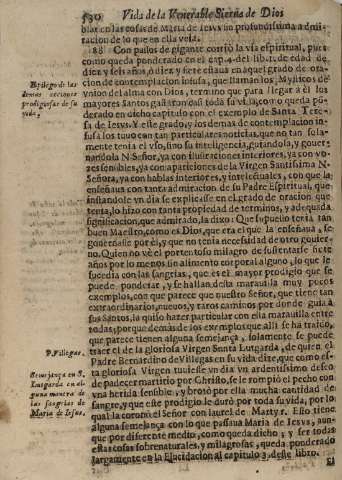 530 Vida de la Venerable Sierva de Dios
blar en las cosas de Maria de Iesus un profundissima admi-
racion de lo que en ella veîa.
88 Con passos de gigante corriò la vía espiritual, pues
como queda ponderado en el cap. 4. del lib. 1. de edad de
diez y seis años, ù diez y siete estaua en aquel grado de ora-
cion de contemplacion infusa, que llaman los Mysticos de
vnion del alma con Dios, termino que para llegar à èl los
mayores Santos gastaron casi toda su vida, como queda pō-
derado en dicho capitulo con el exemplo de Santa Tere-
sa de Iesvs. Y este grado, y los demas de contemplacion in-
fusa los tuuo con tan particulares noticias, que no tan sola-
mente tenia el vso, sino su inteligencia, guiandola, y gouer-
nandola N. Señor, ya con ilustraciones interiores, ya con vo-
zes sensibles, ya con apariciones de la Virgen Santissima N.
Señora, ya con hablas interiores, y intelectuales, con que la
enseñaua con tanta admiracion de su Padre Espiritual, que
instandole vn dia se explicasse en el grado de oracion que
tenia, lo hizo con tanta propiedad de terminos, y adequada
significacion, que admirado, la dixo: Que supuesto tenia tan
buen Maestro, como es Dios, que era el que la enseñaua, se
gouernasse por èl, y que no tenia necessidad de otro gouier-
no. Quien no vè el portentoso milagro de sustentarse siete
años por lo menos sin alimento corporal alguno, lo que le
sucedia con las sangrias, que es el mayor prodigio que se
puede ponderar, y se hallan desta marauilla muy pocos
exemplos, con que parece que nuestro Señor, que tiene tan
extraordinarios, nuevos, y raros caminos por donde guia à
sus Santos, la quiso hazer particular con ella marauilla entre
todos; porque demàs de los exemplos que allì se ha traido,
que parece tienen alguna semejança, solamente se puede
traer el de la gloriosa Virgen Santa Lutgarda, de quien el
Padre Bernardino de Villegas en su vida dize, que como es-
ta gloriosa Virgen tuuiesse vn dia vn ardentissimo desseo
de padecer martirio por Christo, se le rompiò el pecho con
vna herida sensible, y brotò por ella mucha cantidad de
sangre, y que este prodigio le durò por toda su vida, por lo
qual la coronò el Señor con laurel de Martyr. Esto tiene
alguna semejança con lo que passaua Maria de Iesus, aun-
que por diferente medio, como queda dicho, y ser todas
estas cosas sobrenaturales, y milagrosas, queda ponderado
largamente en la Elucidacion al capitulo 3. deste libro.
El
Epilogo de las
demas acciones
prodigiosas de su
vida.
P. Villegas.
Semejança en S.
Lutgarda en al-
guna manera de
las sangrias de
Maria de Iesus.